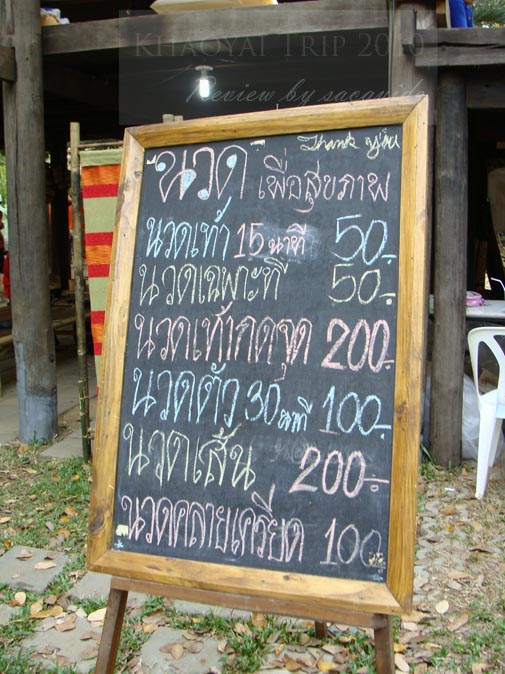 KHAOYAI TRIP 2010
Review by sacawide
Thank You
"นวด" เพื่อสุขภาพ
นวดเท้า 15 นาที 50.-
นวดเฉพาะที่ 50.-
นวดเท้ากดจุด 200.-
นวดตัว 30 นาที 100.-
นวดเส้น 200.-
นวดคลายเครียด 100